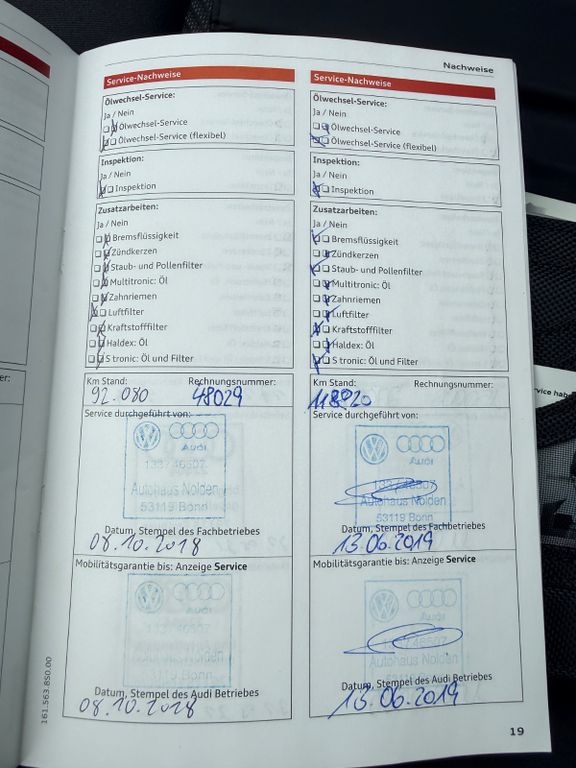 Nachweise
Service-Nachweise
Ölwechsel-Service:
Ja / Nein
Ölwechsel-Service
Ölwechsel-Service (flexibel)
Inspektion:
Ja / Nein
Inspektion
Zusatzarbeiten:
Ja / Nein
Bremsflüssigkeit
Zündkerzen
Staub- und Pollenfilter
Multitronic: Öl
Zahnriemen
Luftfilter
Kraftstofffilter
Haldex: Öl
S tronic: Öl und Filter
Km Stand: Rechnungsnummer:
92.080 48029
Service durchgeführt von:
Audi
133/46507
Autohaus Nolden
53119 Bonn
Datum, Stempel des Fachbetriebes
08.10.2018
Mobilitätsgarantie bis: Anzeige Service
Audi
133/46507
Autohaus Nolden
53119 Bonn
Datum, Stempel des Audi Betriebes
08.10.2018
Service-Nachweise
Ölwechsel-Service:
Ja / Nein
Ölwechsel-Service
Ölwechsel-Service (flexibel)
Inspektion:
Ja / Nein
Inspektion
Zusatzarbeiten:
Ja / Nein
Bremsflüssigkeit
Zündkerzen
Staub- und Pollenfilter
Multitronic: Öl
Zahnriemen
Luftfilter
Kraftstofffilter
Haldex: Öl
S tronic: Öl und Filter
Km Stand: Rechnungsnummer:
Service durchgeführt von:
Audi
Autohaus Nolden
53119 Bonn
Datum, Stempel des Fachbetriebes
13.06.2019
Mobilitätsgarantie bis: Anzeige Service
Audi
Autohaus Nolden
Datum, Stempel des Audi Betriebes
13.06.2019
161.563.8S0.00
19